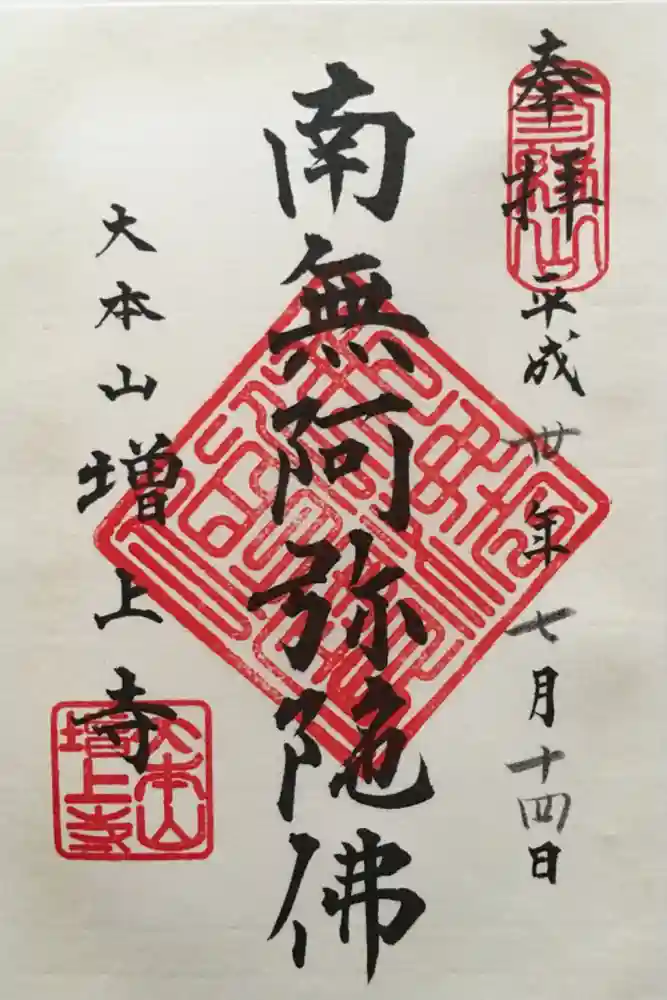 奉拝
平成卅年七月十四日
南無阿弥陀佛
大本山増上寺
大本山
増上寺